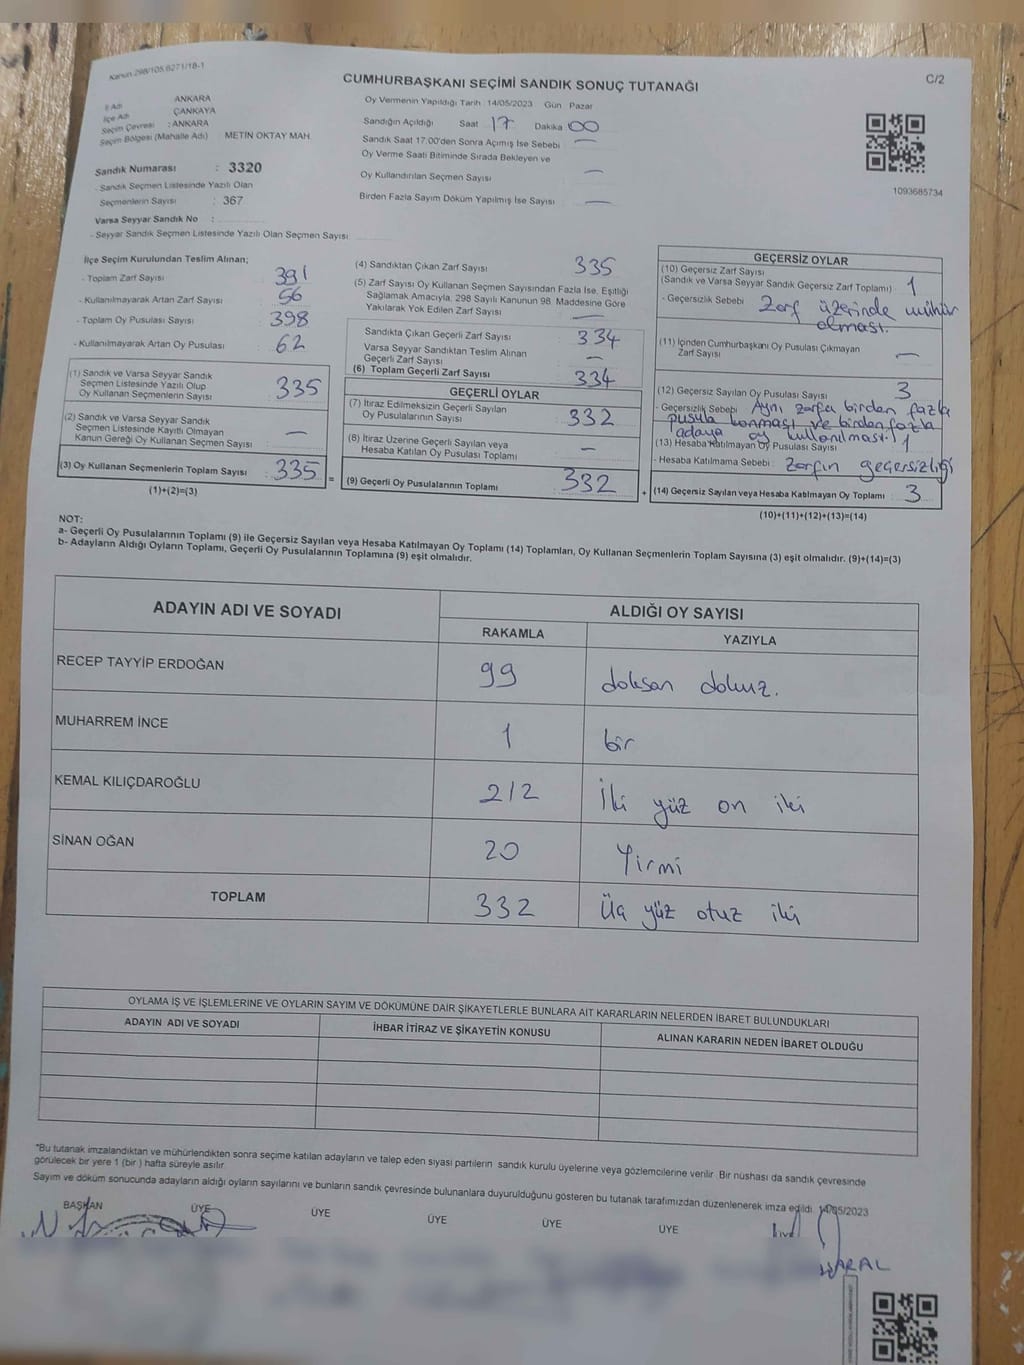 Kanun 298/105,6271/18-1
C/2
CUMHURBAŞKANI SEÇİMİ SANDIK SONUÇ TUTANAĞI
İl Adı ANKARA
İlçe Adı ÇANKAYA
Seçim Çevresi : ANKARA
Seçim Bölgesi (Mahalle Adı) : METİN OKTAY MAH
Sandık Numarası : 3320
- Sandık Seçmen Listesinde Yazılı Olan
Seçmenlerin Sayısı : 367
Varsa Seyyar Sandık No :
- Seyyar Sandık Seçmen Listesinde Yazılı Olan Seçmen Sayısı:
Oy Vermenin Yapıldığı Tarih :14/05/2023 Gün Pazar
Sandığın Açıldığı Saat 17 Dakika 00
Sandık Saat 17.00'den Sonra Açımış İse Sebebi —
Oy Verme Saati Bitiminde Sırada Bekleyen ve
Oy Kullandırılan Seçmen Sayısı —
Birden Fazla Sayım Döküm Yapılmış İse Sayısı —
1093685734
İlçe Seçim Kurulundan Teslim Alınan;
- Toplam Zarf Sayısı 391
- Kullanılmayarak Artan Zarf Sayısı 56
- Toplam Oy Pusulası Sayısı 398
- Kullanılmayarak Artan Oy Pusulası 62
(1) Sandık ve Varsa Seyyar Sandık
Seçmen Listesinde Yazılı Olup
Oy Kullanan Seçmenlerin Sayısı 335
(2) Sandık ve Varsa Seyyar Sandık
Seçmen Listesinde Kayıtlı Olmayan
Kanun Gereği Oy Kullanan Seçmen Sayısı —
(3) Oy Kullanan Seçmenlerin Toplam Sayısı 335 =
(1)+(2)=(3)
(4) Sandıktan Çıkan Zarf Sayısı 335
(5) Zarf Sayısı Oy Kullanan Seçmen Sayısından Fazla İse, Eşitliği
Sağlamak Amacıyla, 298 Sayılı Kanunun 98. Maddesine Göre
Yakılarak Yok Edilen Zarf Sayısı —
Sandıkta Çıkan Geçerli Zarf Sayısı 334
Varsa Seyyar Sandıktan Teslim Alınan
Geçerli Zarf Sayısı —
(6) Toplam Geçerli Zarf Sayısı 334
GEÇERLİ OYLAR
(7) İtiraz Edilmeksizin Geçerli Sayılan
Oy Pusulalarının Sayısı 332
(8) İtiraz Üzerine Geçerli Sayılan veya
Hesaba Katılan Oy Pusulası Toplamı —
(9) Geçerli Oy Pusulalarının Toplamı 332 +
GEÇERSİZ OYLAR
(10) Geçersiz Zarf Sayısı
(Sandık ve Varsa Seyyar Sandık Geçersiz Zarf Toplamı) : 1
- Geçersizlik Sebebi Zarf üzerinde mühür
olması.
(11) İçinden Cumhurbaşkanı Oy Pusulası Çıkmayan
Zarf Sayısı —
(12) Geçersiz Sayılan Oy Pusulası Sayısı 3
- Geçersizlik Sebebi Aynı zarfa birden fazla
pusula konması ve birden fazla
adaya oy kullanılması.
(13) Hesaba Katılmayan Oy Pusulası Sayısı 1
- Hesaba Katılmama Sebebi : Zarfın geçersizliği
(14) Geçersiz Sayılan veya Hesaba Katılmayan Oy Toplamı : 3
(10)+(11)+(12)+(13)=(14)
NOT:
a- Geçerli Oy Pusulalarının Toplamı (9) ile Geçersiz Sayılan veya Hesaba Katılmayan Oy Toplamı (14) Toplamları, Oy Kullanan Seçmenlerin Toplam Sayısına (3) eşit olmalıdır. (9)+(14)=(3)
b- Adayların Aldığı Oyların Toplamı, Geçerli Oy Pusulalarının Toplamına (9) eşit olmalıdır.
ADAYIN ADI VE SOYADI ALDIĞI OY SAYISI
RAKAMLA YAZIYLA
RECEP TAYYİP ERDOĞAN 99 doksan dokuz.
MUHARREM İNCE 1 bir
KEMAL KILIÇDAROĞLU 212 İki yüz on iki
SİNAN OĞAN 20 Yirmi
TOPLAM 332 Üç yüz otuz iki
OYLAMA İŞ VE İŞLEMLERİNE VE OYLARIN SAYIM VE DÖKÜMÜNE DAİR ŞİKAYETLERLE BUNLARA AİT KARARLARIN NELERDEN İBARET BULUNDUKLARI
ADAYIN ADI VE SOYADI İHBAR İTİRAZ VE ŞİKAYETİN KONUSU ALINAN KARARIN NEDEN İBARET OLDUĞU
*Bu tutanak imzalandıktan ve mühürlendikten sonra seçime katılan adayların ve talep eden siyasi partilerin sandık kurulu üyelerine veya gözlemcilerine verilir. Bir nüshası da sandık çevresinde
görülecek bir yere 1 (bir ) hafta süreyle asılır.
Sayım ve döküm sonucunda adayların aldığı oyların sayılarını ve bunların sandık çevresinde bulunanlara duyurulduğunu gösteren bu tutanak tarafımızdan düzenlenerek imza edildi. 14/05/2023
BAŞKAN ÜYE ÜYE ÜYE ÜYE ÜYE